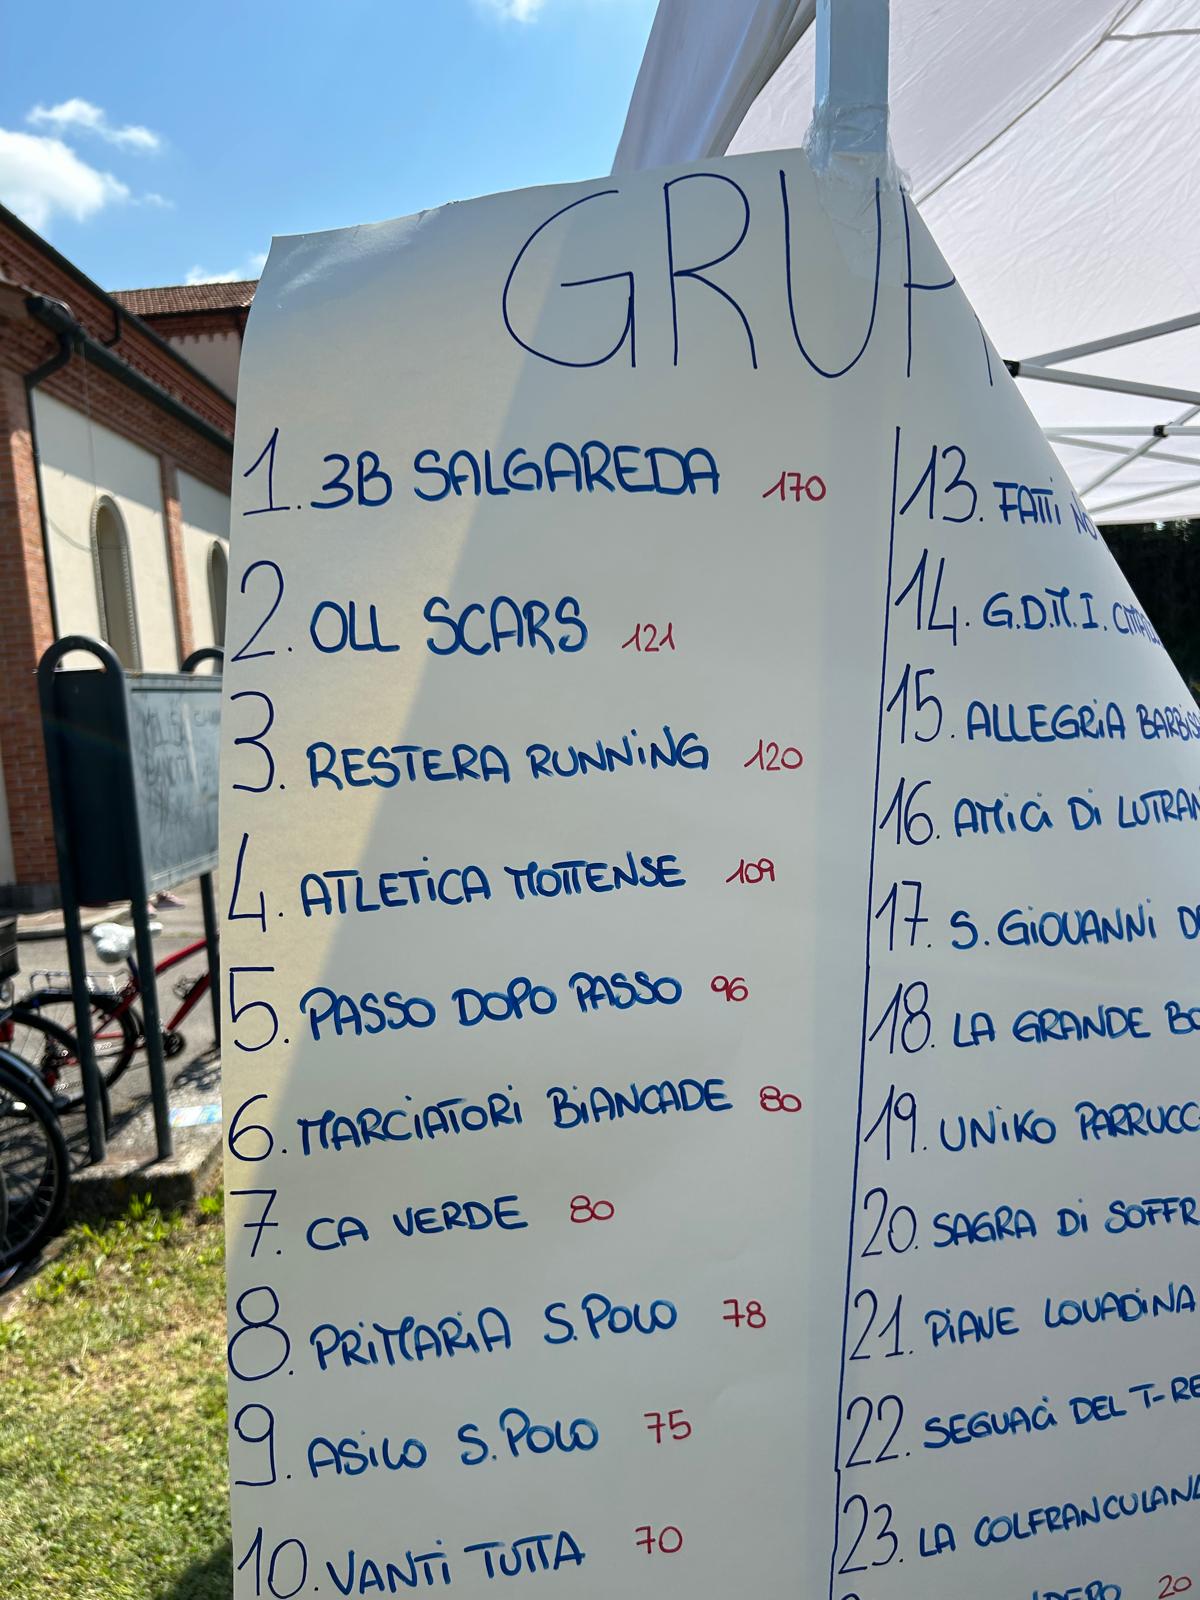 GRUP
1. 3B SALGAREDA 170
2. OLL SCARS 121
3. RESTERA RUNNING 120
4. ATLETICA MOTTENSE 109
5. PASSO DOPO PASSO 96
6. MARCIATORI BIANCADE 80
7. CA VERDE 80
8. PRIMARIA S. POLO 78
9. ASILO S. POLO 75
10. VANTI TUTTA 70
13. FATTI
14. G.D.M.I.
15. ALLEGRIA
16. AMICI DI
17. S. GIOVANNI
18. LA GRANDE
19. UNIKO
20. SAGRA DI
21. PIAVE LOVADINA
22. SEGUACI DEL
23. LA
20